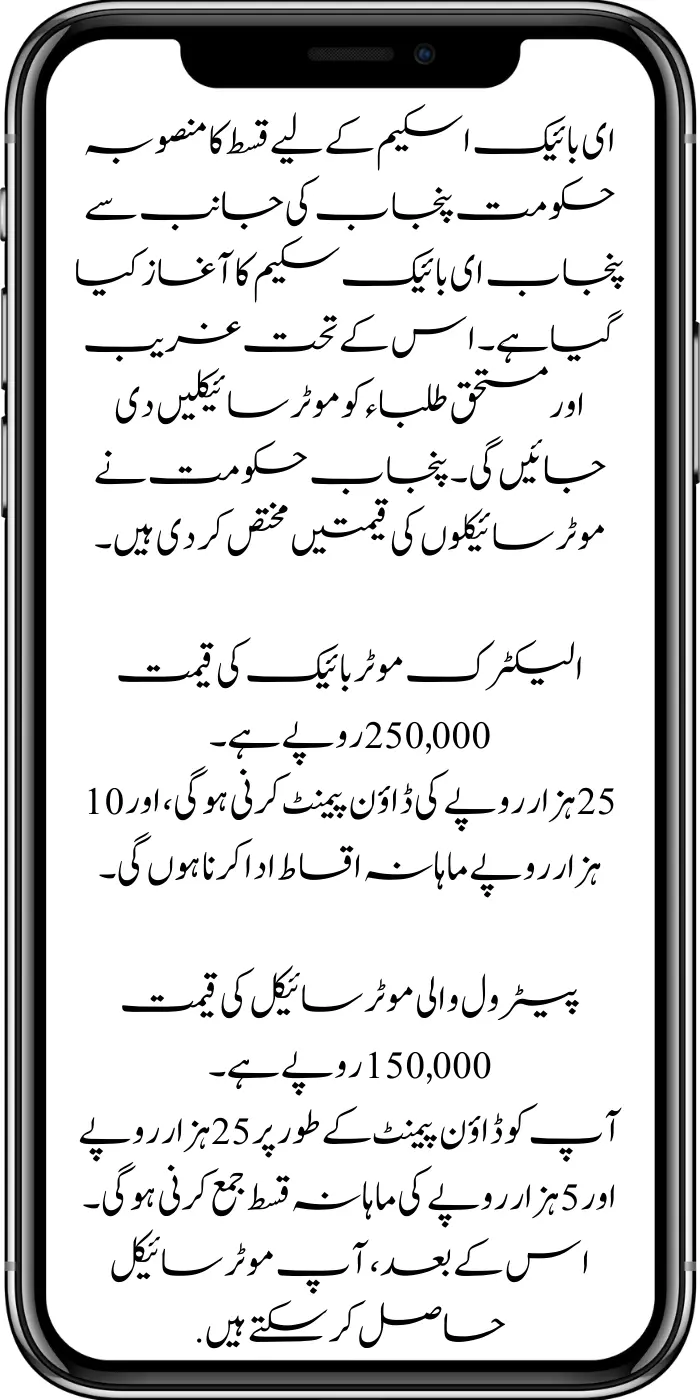 ای بائیک اسکیم کے لیے قسط کا منصوبہ
حکومت پنجاب کی جانب سے
پنجاب ای بائیک سکیم کا آغاز کیا
گیا ہے۔ اس کے تحت غریب
اور مستحق طلباء کو موٹر سائیکلیں دی
جائیں گی۔ پنجاب حکومت نے
موٹر سائیکلوں کی قیمتیں مختص کر دی ہیں۔
الیکٹرک موٹر بائیک کی قیمت
250,000 روپے ہے۔
25 ہزار روپے کی ڈاؤن پیمنٹ کرنی ہو گی، اور 10
ہزار روپے ماہانہ اقساط ادا کرنا ہوں گی۔
پیٹرول والی موٹر سائیکل کی قیمت
150,000 روپے ہے۔
آپ کو ڈاؤن پیمنٹ کے طور پر 25 ہزار روپے
اور 5 ہزار روپے کی ماہانہ قسط جمع کرنی ہو گی۔
اس کے بعد، آپ موٹر سائیکل
حاصل کر سکتے ہیں.